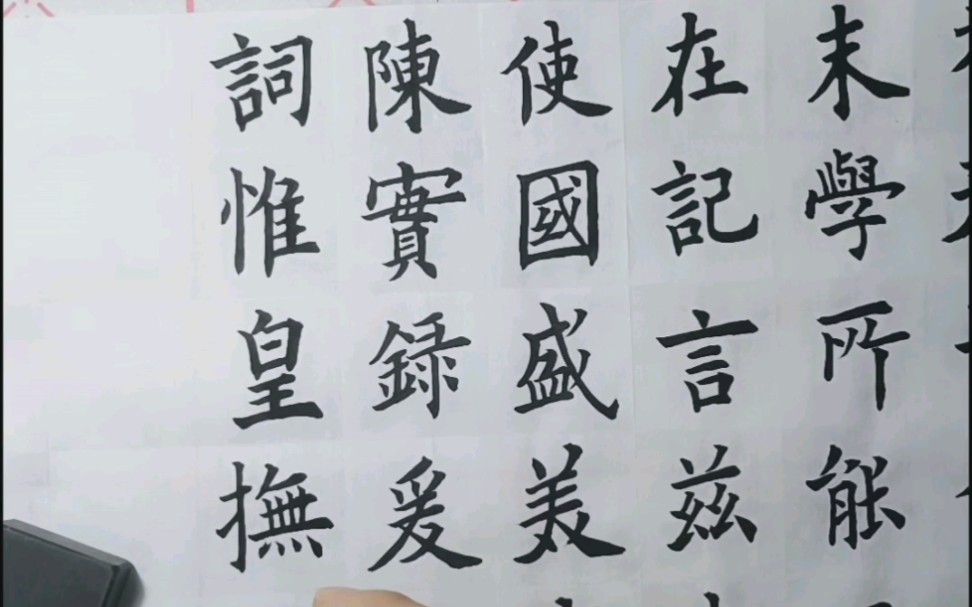 末學所能
在記言茲
使國盛美
陳實録爰
詞惟皇撫